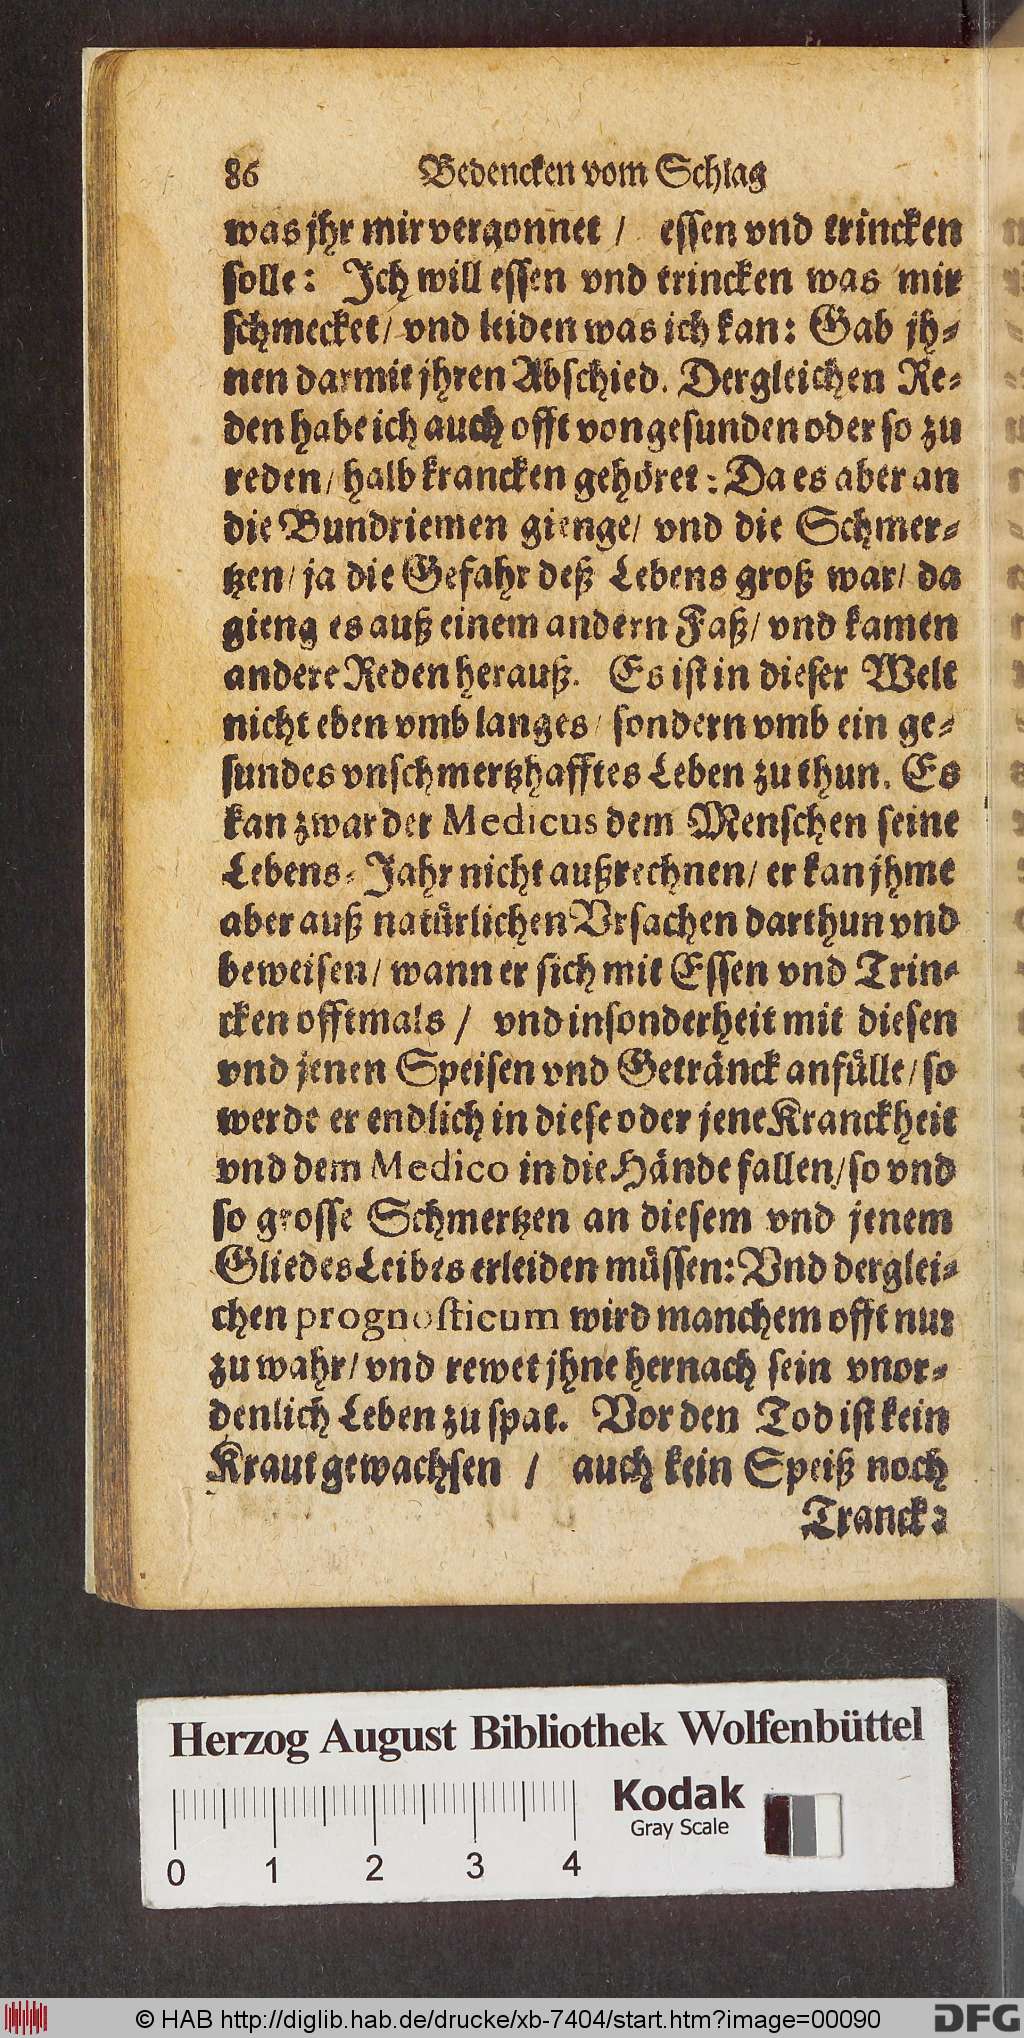 86 Bedencken vom Schlag
was jhr mir vergonnet / essen vnd trincken
solle: Ich will essen vnd trincken was mir
schmecket/ vnd leiden was ich kan: Gab jh-
nen darmit jhren Abschied. Dergleichen Re-
den habe ich auch offt von gesunden oder so zu
reden/ halb krancken gehöret: Da es aber an
die Bundriemen gienge/ vnd die Schmer-
tzen/ ja die Gefahr deß Lebens groß war/ da
gieng es auß einem andern Faß/ vnd kamen
andere Reden herauß. Es ist in dieser Welt
nicht eben vmb langes/ sondern vmb ein ge-
sundes vnschmertzhafftes Leben zu thun. Es
kan zwar der Medicus dem Menschen seine
Lebens-Jahr nicht außrechnen/ er kan jhme
aber auß natürlichen Vrsachen darthun vnd
beweisen/ wann er sich mit Essen vnd Trin-
cken offtmals / vnd insonderheit mit diesen
vnd jenen Speisen vnd Getränck anfülle/ so
werde er endlich in diese oder jene Kranckheit
vnd dem Medico in die Hände fallen/ so vnd
so grosse Schmertzen an diesem vnd jenem
Glied des Leibes erleiden müssen: Vnd derglei-
chen prognosticum wird manchem offt nur
zu wahr/ vnd rewet jhne hernach sein vnor-
denlich Leben zu spat. Vor den Tod ist kein
Kraut gewachsen / auch kein Speiß noch
Tranck:
Herzog August Bibliothek Wolfenbüttel
Kodak
Gray Scale
0 1 2 3 4
© HAB http://diglib.hab.de/drucke/xb-7404/start.htm?image=00090
DFG